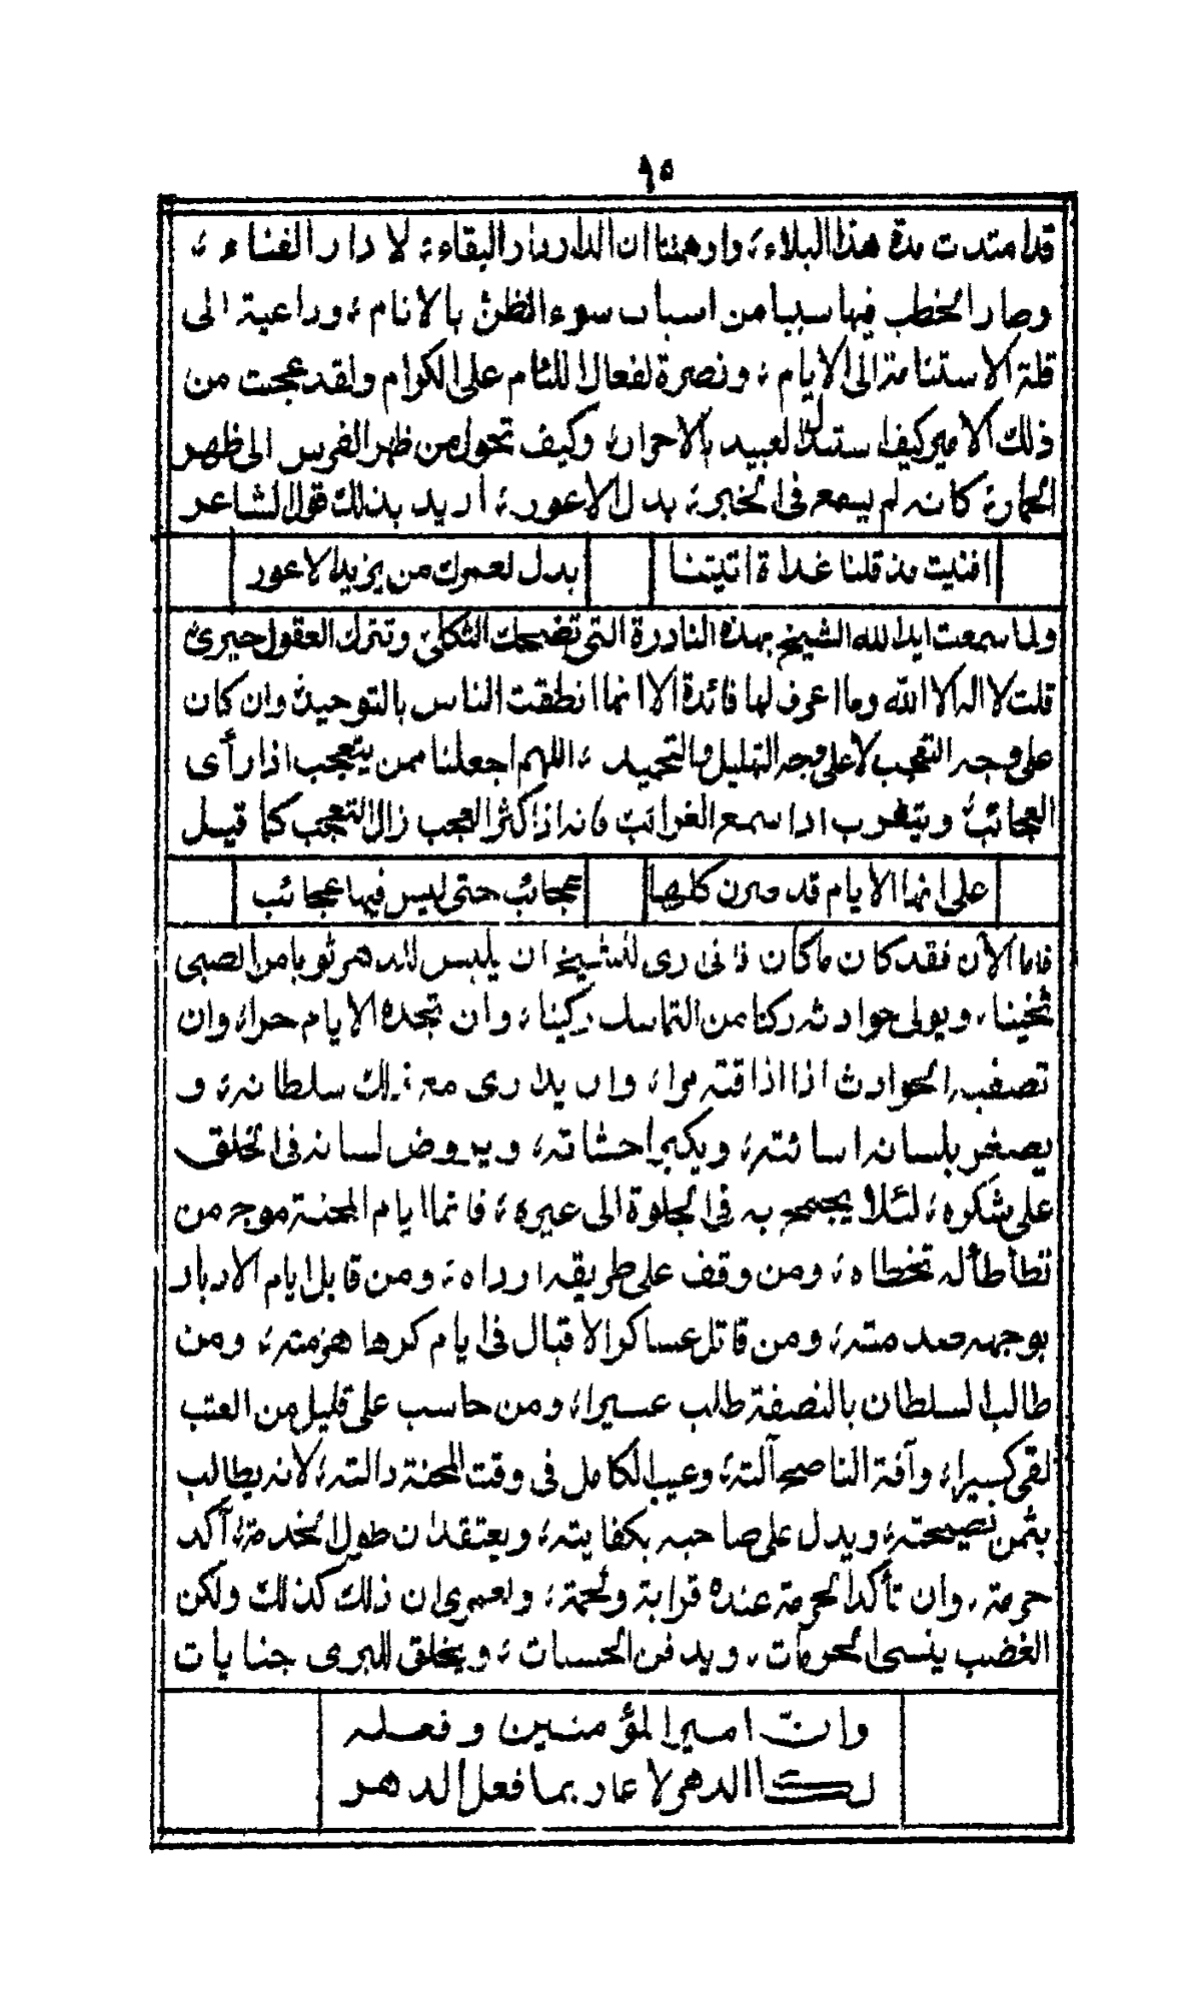 ٩٥
قد امتدت مدة هذا البلاء، واوهمتنا ان الدار دار البقاء، لا دار الفناء،
وصار الخطب فيها سببا من اسباب سوء الظن بالانام، وداعية الى
قلة الاستنامة الى الايام، ونصرة لفعال اللئام على الكرام ولقد عجبت من
ذلك الامير كيف استبدل العبيد بالاحرار، وكيف تحول من ظهر الفرس الى ظهر
الحمار، كانه لم يسمع في الخبر، بدل الاعور، اريد بذلك قول الشاعر
افتيت مذ قلنا غداة اتيتنا بدل لعمرك من يزيد الاعور
ولما سمعت ايد الله الشيخ بهذه النادرة التي تضحك الثكلى، وتترك العقول حيرى
قلت لا اله الا الله وما اعرف لها فائدة الا انما انطقت الناس بالتوحيد، وان كان
على وجه التعجب لا على وجه التهليل والتحميد، اللهم اجعلنا ممن يتعجب اذا رأى
العجائب، ويتغرب اذا سمع الغرائب فانه اذا كثر العجب زال التعجب كما قيل
على انها الايام قد صرن كلها عجائب حتى ليس فيها عجائب
فاما الآن فقد كان ما كان فانى ارى للشيخ ان يلبس للدهر ثوبا من الصبى
ثخينا، ويولى حوادثه ركنا من التماسك ركينا، وان تجده الايام حرا، وان
تصفبه الحوادث اذا اذاقته مرا، وان يدارى مع ذلك سلطانه، و
يصغر بلسانه اسائته، ويكبر احشاته، ويروض لسانه فى الخلق
على شكره، لئلا يجمح به في الجلوة الى غيره، فانما ايام المحنة موجه من
تطأطأ له تخطاه، ومن وقف على طريقه ارداه، ومن قابل ايام الادبار
بوجهه صدمته، ومن قاتل عساكر الاقبال فى ايام كرها هزمته، ومن
طالب السلطان بالنصفة طلب عسيرا، ومن حاسب على قليل من العتب
لقى كسيرا، وآفة الناصح آلته، وعيب الكامل فى وقت المحنة دالته، لانه يطالب
بثمن نصيحته، ويدل على صاحبه بكفايته، ويعتقد ان طول الخدمة، آكد
حرمة، وان تأكد الحرمة عنده قرابة ولحمة، ولعمرى ان ذلك كذلك ولكن
الغضب ينسى الحرمات، ويدفن الحسنات، ويخلق للبرى جنايات
وان امير المؤمنين وفعله
لكا الدهر لا عار بما فعل الدهر